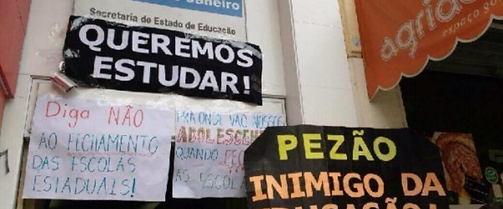 de Janeiro
Secretaria de Estado de Educação
QUEREMOS
ESTUDAR!
Diga NÃO
AO FECHAMENTO
DAS ESCOLAS
ESTADUAIS!
PRA ONDE VÃO NOSSOS
ADOLESCEN
QUANDO FEC
AS ESCOL
PEZÃO
INIMIGO DA
EDUCAÇÃO!
agridoc
espaço gu